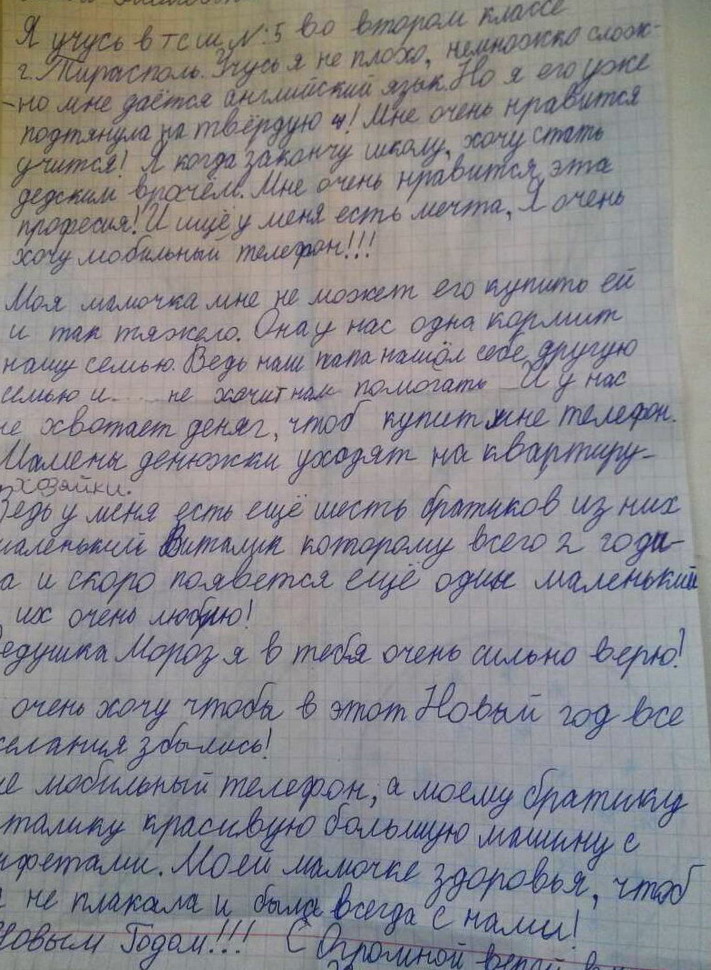 Я учусь в тсш №:5 во втором классе
г. Тирасполь. Учусь я не плохо, немножко слож-
-но мне даётся английский язык. Но я его уже
подтянула на твёрдую 4! Мне очень нравится
учится! Я когда закончу школу, хочу стать
дедским врачём. Мне очень нравится эта
професия! И ищё у меня есть мечта, Я очень
хочу мобильный телефон!!!
Моя мамочка мне не может его купить ей
и так тяжело. Она у нас одна кормит
нашу семью. Ведь наш папа нашёл себе другую
семью и .... не хачит нам помогать. И у нас
не хвотает деняг, чтоб купит мне телефон.
Мамены денюжки уходят на квартиру-
хозяйки.
Ведь у меня есть ещё шесть братиков из них
маленький Виталик которому всего 2 годи-
ка и скоро появется ещё один маленький
их очень люблю!
Дедушка Мороз я в тебя очень сильно верю!
очень хочу чтобы в этот Новый год все
желания збылись!
не мобильный телефон, а моему братику
италику красивую большую машину с
нфетами. Моей мамочке здоровья, чтоб
не плакала и была всегда с нами!
Новым Годом!!! С Огромной верой в